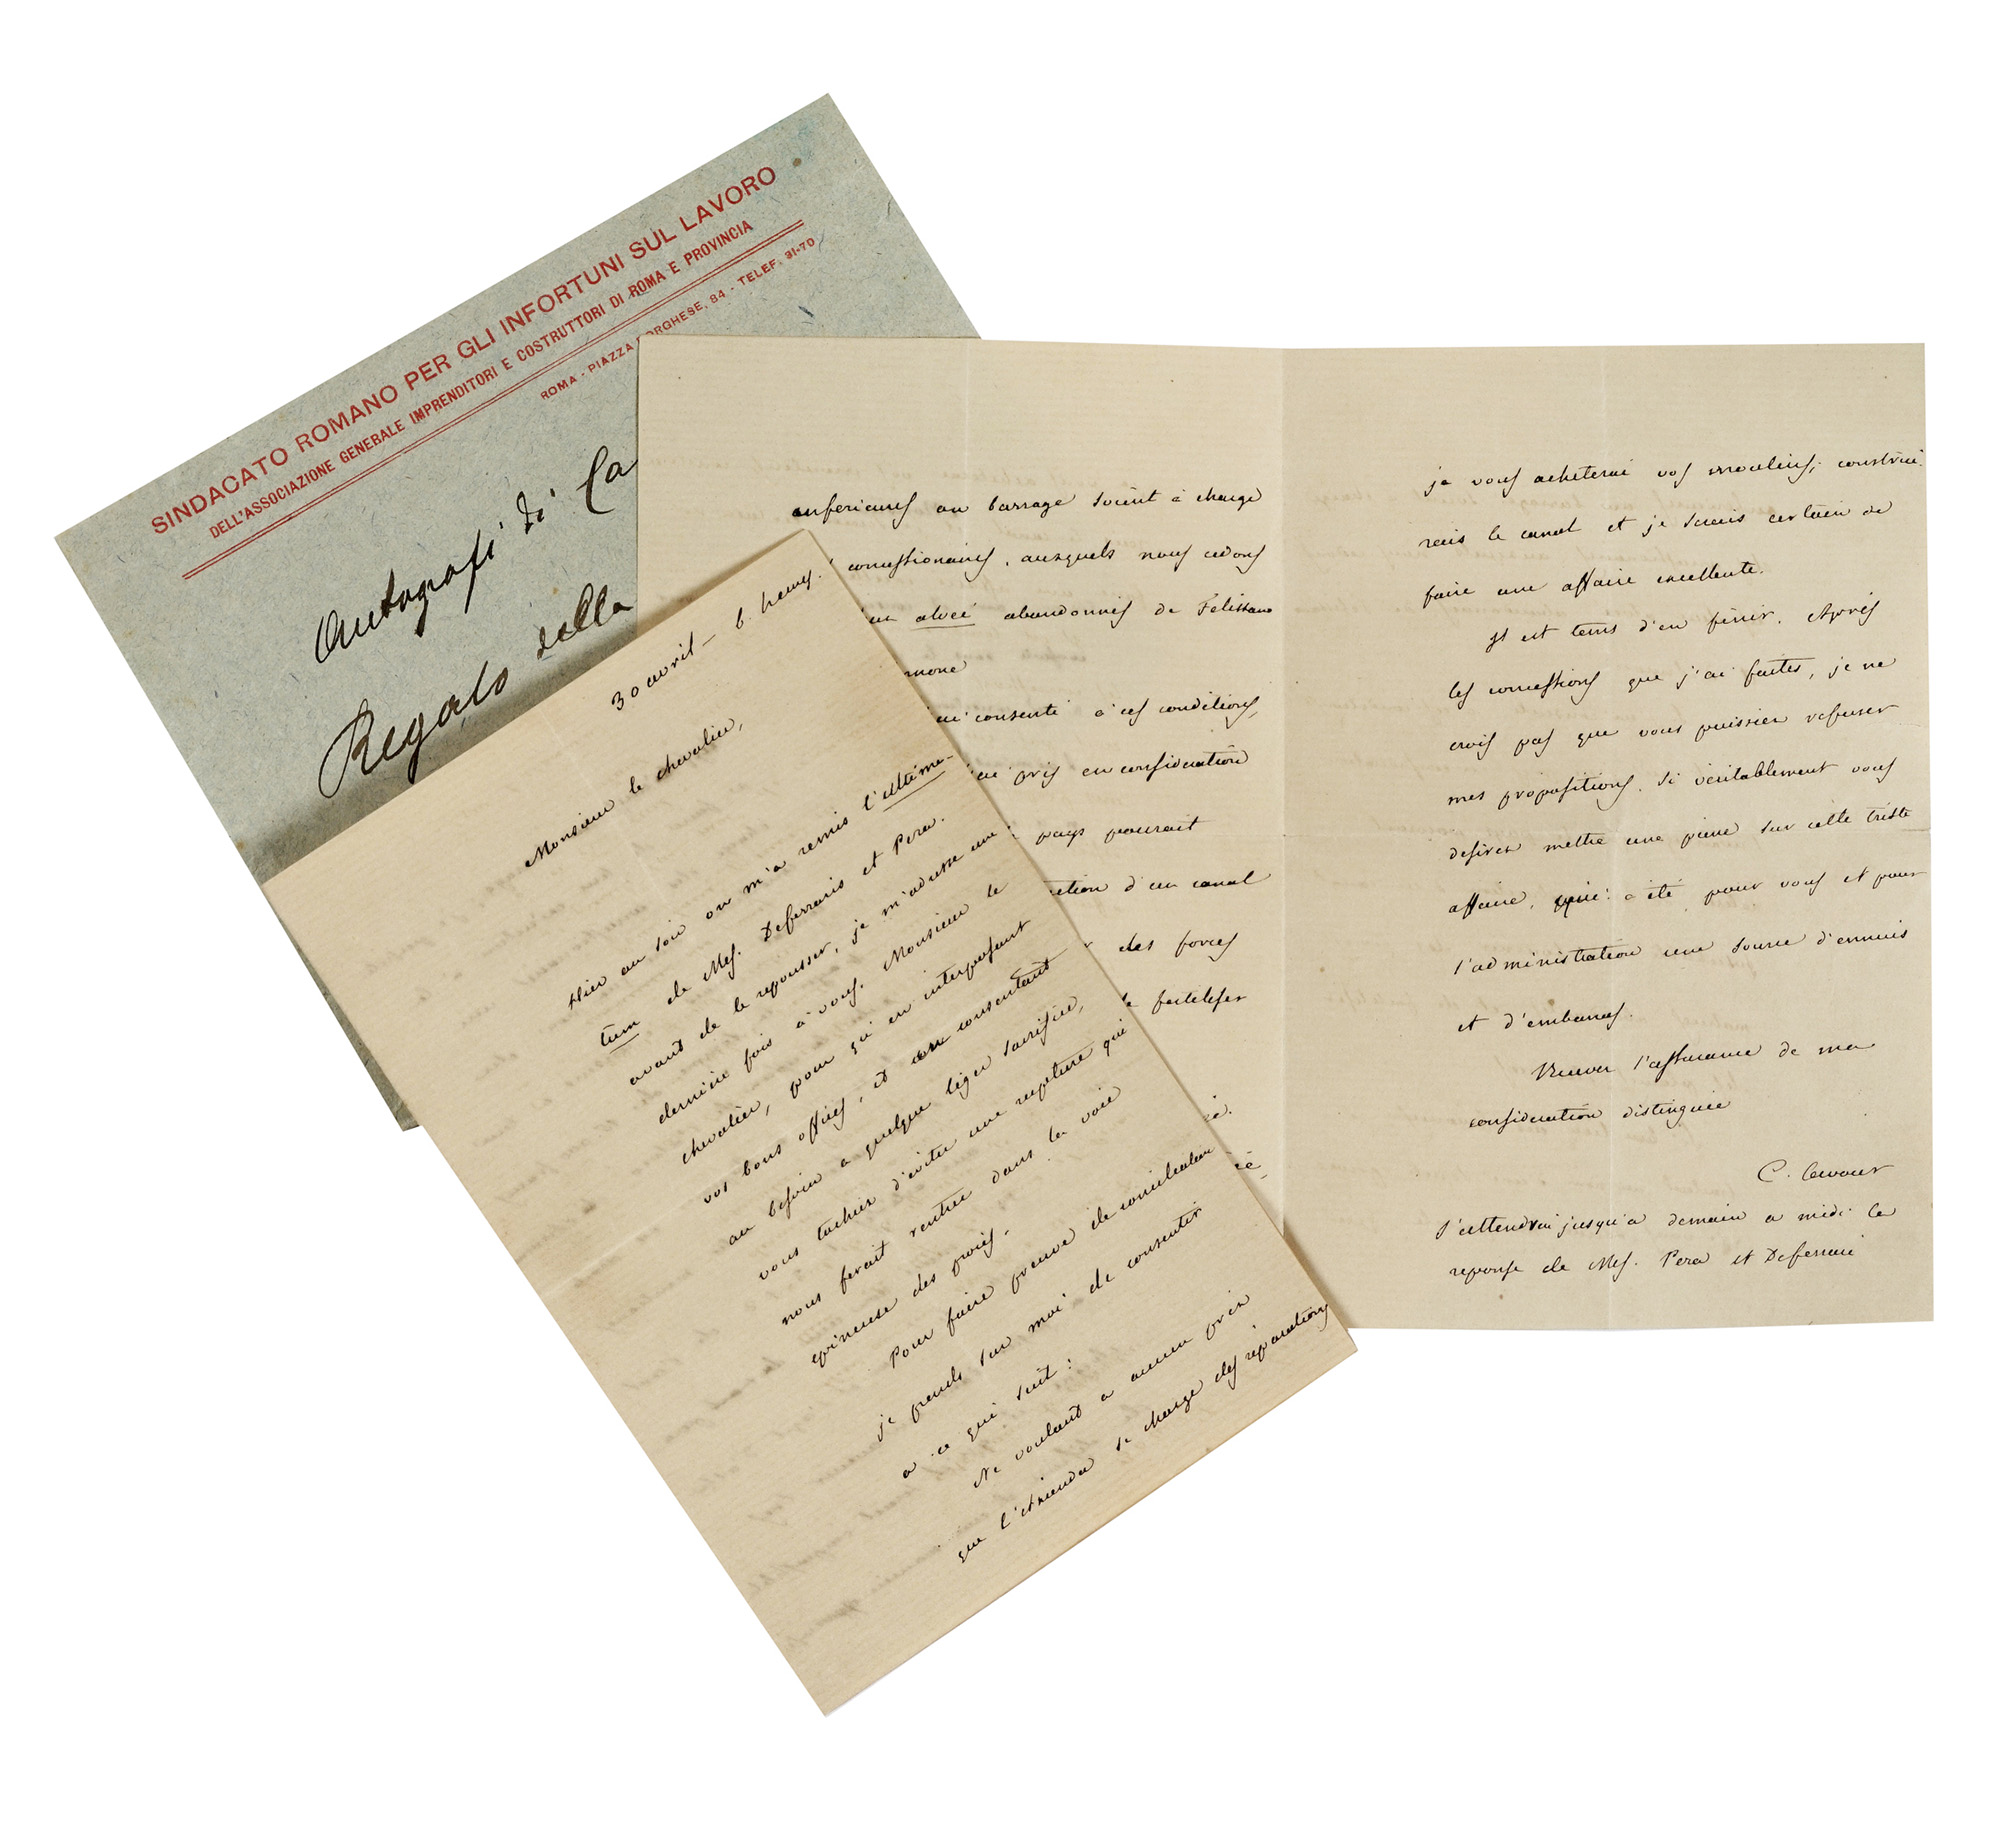 SINDACATO ROMANO PER GLI INFORTUNI SUL LAVORO
DELL'ASSOCIAZIONE GENERALE IMPRENDITORI E COSTRUTTORI DI ROMA E PROVINCIA
ROMA - PIAZZA BORGHESE, 84 - TELEF. 31-70
Autografi di Ca
Regalo della
30 avril - 6. heures.
Monsieur le chevalier,
Hier au soir on m'a remis l'ultima-
tum de Mes. Deferraris et Pera.
avant de le repousser, je m'adresse une
dernière fois à vous, Monsieur le
chevalier, pour qu'en interposant
vos bons offices, et en consentant
au besoin a quelque léger sacrifice,
vous tachiez d'eviter une rupture qui
nous ferait rentrer dans la voie
epineuse des procès.
Pour faire preuve de conciliation
je prends sur moi de consentir
a ce qui suit:
Ne voulant a aucun prix
que l'azienda se charge des réparations
inferieures au barrage soient à charge
concessionaires, auxquels nous cedons
alvei abandonnés de Felizzano
mone
consenti à ces conditions,
pris en consideration
pays pourait
ction d'un canal
des forces
fertiliser
je vous acheterai vos moulins; construi-
rais le canal et je serais certain de
faire une affaire excellente.
Il est tems d'en finir. Après
les concessions que j'ai faites, je ne
crois pas que vous puissiez refuser
mes propositions, si véritablement vous
desirez mettre une pierre sur cette triste
affaire, qui a été pour vous et pour
l'administration une source d'ennuis
et d'embarras.
Recevez l'assurance de ma
consideration distinguée
C. Cavour
J'attendrai jusqu'a demain a midi la
reponse de Mes. Pera et Deferrari